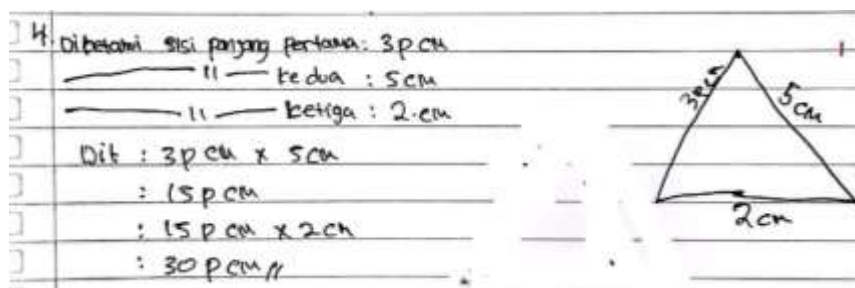 4. Diketahui sisi panjang pertama : 3p cm
—— 〃 —— kedua : 5 cm
—— 〃 —— ketiga : 2 cm
Dit : 3p cm x 5 cm
: 15 p cm
: 15 p cm x 2 cm
: 30 p cm //
3p cm
5 cm
2 cm